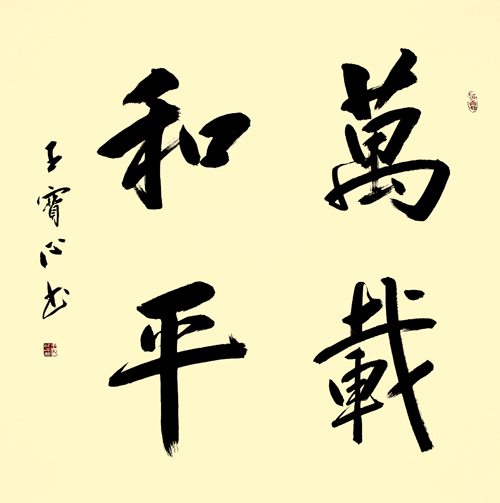 萬載
和平
王寶心书